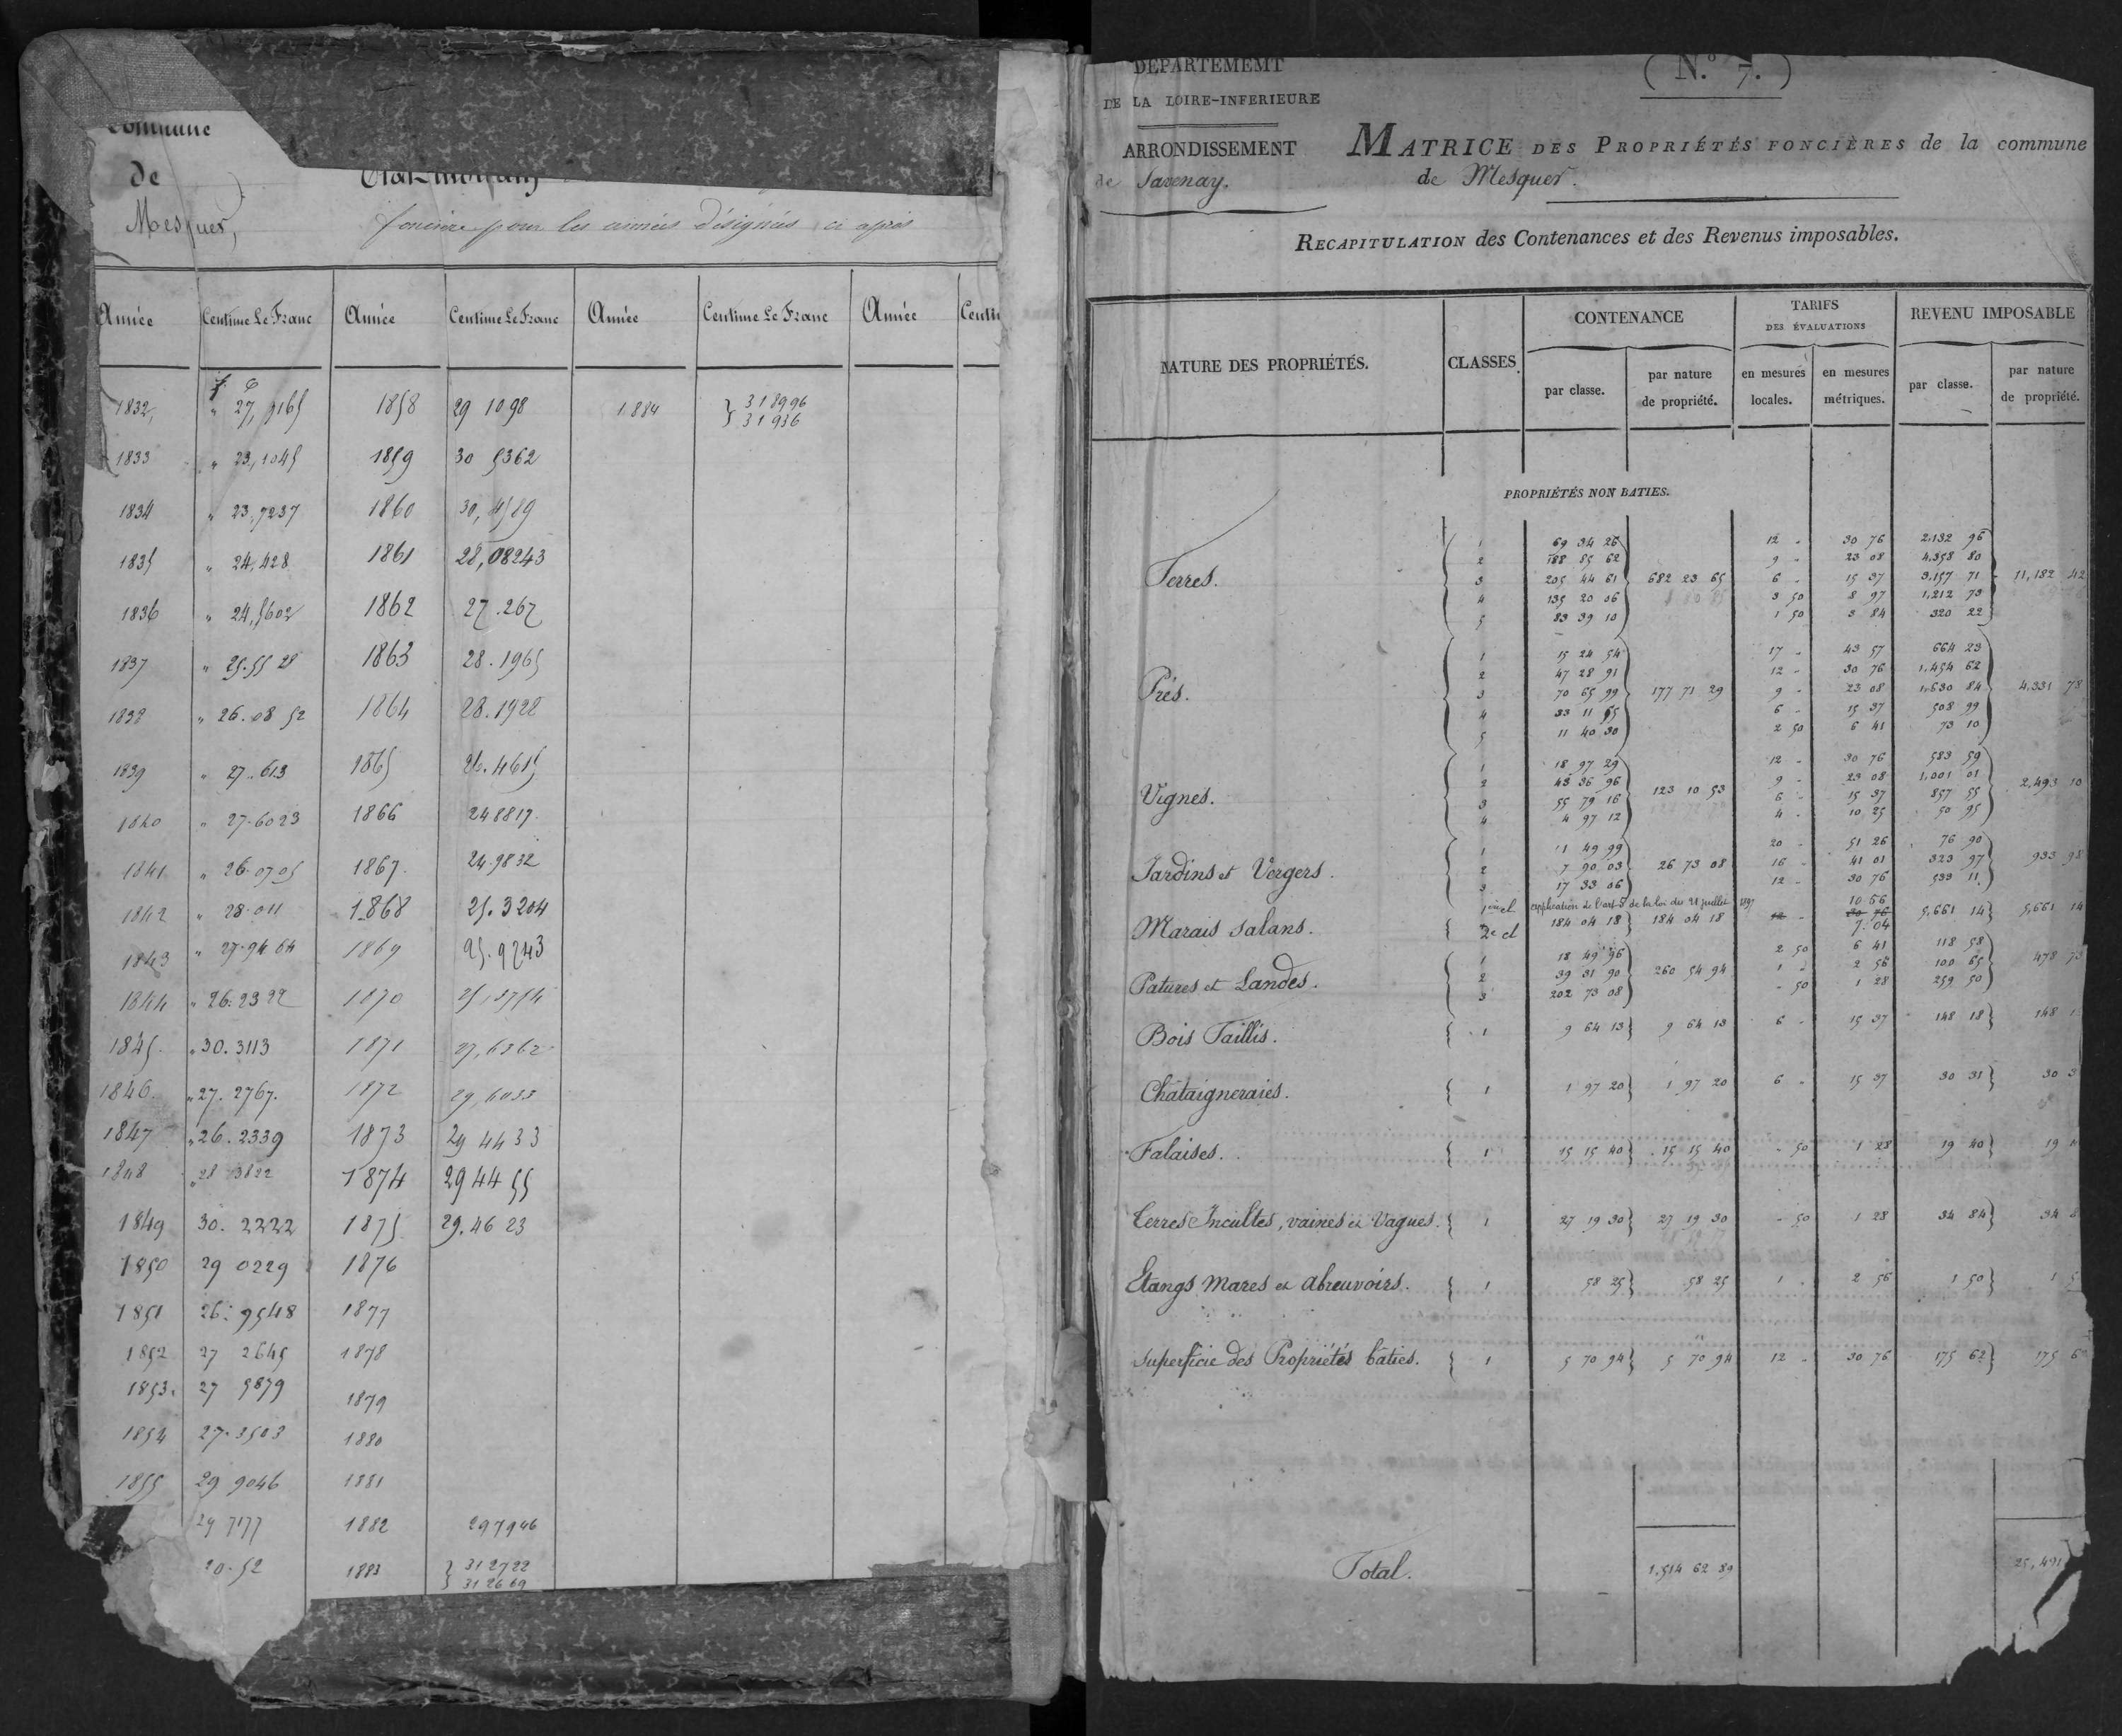 Commune
de
Mesquer,
foncière pour les années désignées ci après
Année Centime Le Franc Année Centime Le Franc Année Centime Le Franc Année
f. c
1832, " 27,9165 1858 29 1098 1884 } 318996
31936
1833 " 23,1045 1859 30 5362
1834 " 23.7237 1860 30,4589
1835 " 24,428 1861 28,08243
1836 " 24,5602 1862 27.267
1837 " 25.5528 1863 28.1965
1838 " 26.08 52 1864 28.1928
1839 " 27.613 1865 26.4615
1840 " 27.6023 1866 248817
1841 " 26.0705 1867 24.9832
1842 " 28.011 1868 25.3204
1843 " 27.94 64 1869 25.9243
1844 " 26.2322 1870
1845 " 30.3113 1871 27,6362
1846 " 27.2767. 1872 29,6033
1847 " 26.2339 1873 29 4433
1848 " 28 3822 1874 29 44 55
1849 30. 2222 1875 29.46 23
1850 29 0229 1876
1851 26.9548 1877
1852 27 2645 1878
1853. 27 5879 1879
1854 27.3503 1880
1855 29 9046 1881
1882 297946
20.52 1883 } 312722
312669
DEPARTEMEMT
DE LA LOIRE-INFERIEURE
ARRONDISSEMENT
de Savenay.
( N.º 7. )
MATRICE DES PROPRIÉTÉS FONCIÈRES de la commune
de Mesquer.
RECAPITULATION des Contenances et des Revenus imposables.
NATURE DES PROPRIÉTÉS. CLASSES. CONTENANCE TARIFS DES ÉVALUATIONS REVENU IMPOSABLE
par classe. par nature de propriété. en mesures locales. en mesures métriques. par classe. par nature de propriété.
PROPRIÉTÉS NON BATIES.
Terres.
1 69 34 26 12 - 30 76 2.132 96
2 188 85 62 9 - 23 08 4.358 80
3 205 44 61 682 23 65 6 - 15 37 3.157 71 11,182 42
4 135 20 06 3 50 8 97 1,212 73
5 83 39 10 1 50 3 84 320 22
Prés.
1 15 24 54 17 - 43 57 664 23
2 47 28 91 12 - 30 76 1.454 62
3 70 65 99 177 71 29 9 - 23 08 1.630 84 4,331 78
4 33 11 55 6 - 15 37 508 99
5 11 40 30 2 50 6 41 73 10
Vignes.
1 18 97 29 12 - 30 76 583 59
2 43 36 96 123 10 53 9 - 23 08 1,001 01 2,493 10
3 55 79 16 6 - 15 37 857 55
4 4 97 12 4 - 10 25 50 95
Jardins et Vergers.
1 1 49 99 20 - 51 26 76 90
2 7 90 03 26 73 08 16 - 41 01 323 97 933 98
3 17 33 06 12 - 30 76 533 11
application de l'art. 5 de la loi du 21 juillet 1897 10 56
Marais salans. 2e cl 184 04 18 184 04 18 12 - 30 76 5,661 14 5,661 14
7.04
Patures et Landes.
1 18 49 96 2 50 6 41 118 58
2 39 31 90 260 54 94 1 - 2 56 100 65 478 73
3 202 73 08 - 50 1 28 259 50
Bois Taillis. 1 9 64 13 9 64 13 6 - 15 37 148 18 148
Chataigneraies. 1 1 97 20 1 97 20 6 - 15 37 30 31 30 3
Falaises. 1 15 15 40 15 15 40 - 50 1 28 19 40 19
Terres Incultes, vaines et Vagues. 1 27 19 30 27 19 30 - 50 1 28 34 84 34
Etangs Mares et Abreuvoirs. 1 58 25 58 25 1 - 2 56 1 50 1
Superficie des Propriétés bâties. 1 5 70 94 5 70 94 12 - 30 76 175 62 175 6
Total. 1.514 62 89 25,491